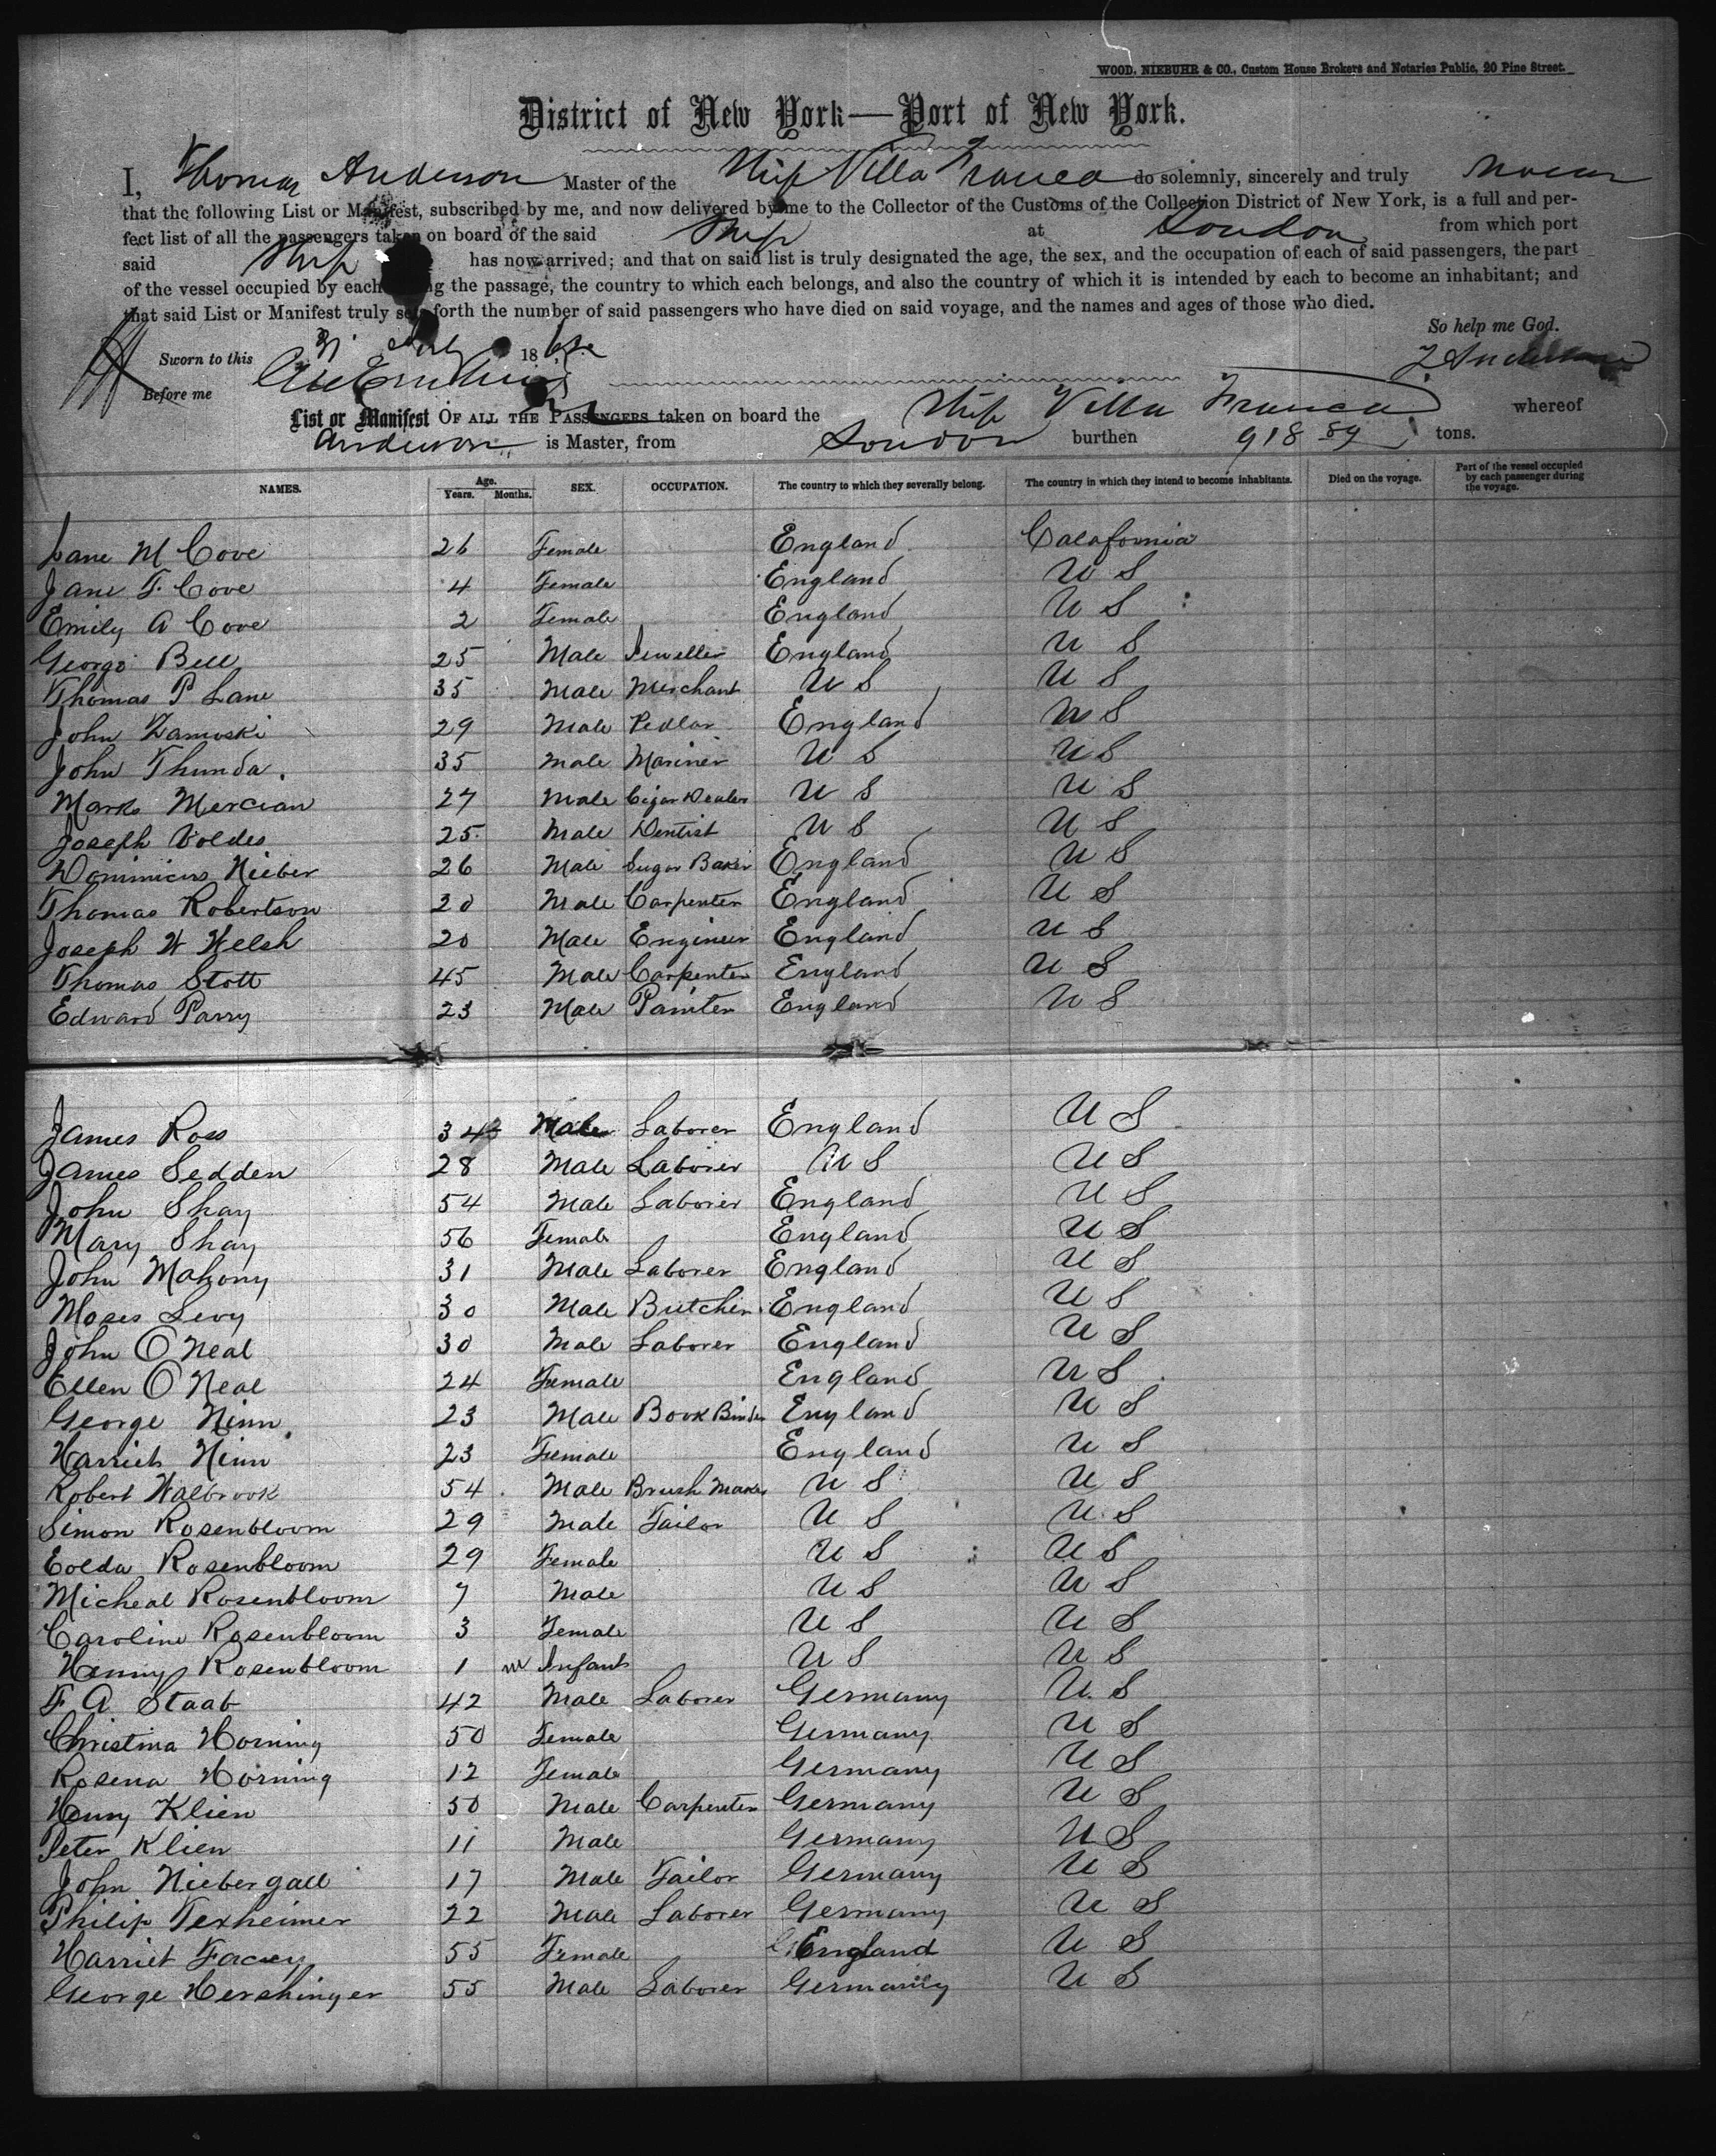 WOOD, NIEBUHR & CO., Custom House Brokers and Notaries Public, 20 Pine Street.
District of New York—Port of New York.
I, Thomas Anderson Master of the Ship Villa Franca do solemnly, sincerely and truly swear
that the following List or Manifest, subscribed by me, and now delivered by me to the Collector of the Customs of the Collection District of New York, is a full and per-
fect list of all the passengers taken on board of the said Ship at London from which port
said Ship has now arrived; and that on said list is truly designated the age, the sex, and the occupation of each of said passengers, the part
of the vessel occupied by each the passage, the country to which each belongs, and also the country of which it is intended by each to become an inhabitant; and
that said List or Manifest truly sets forth the number of said passengers who have died on said voyage, and the names and ages of those who died.
So help me God.
Sworn to this 31 July 18
T Anderson
Before me
List or Manifest OF ALL THE PASSENGERS taken on board the Ship Villa Franca whereof
Anderson is Master, from London burthen 918 89 tons.
NAMES. Age. Years. Months. SEX. OCCUPATION. The country to which they severally belong. The country in which they intend to become inhabitants. Died on the voyage. Part of the vessel occupied by each passenger during the voyage.
Jane M Cove 26 Female England Calafornia
Jane F. Cove 4 Female England U S
Emily A Cove 2 Female England U S
George Bell 25 Male Jeweller England U S
Thomas P Lane 35 Male Merchant U S U S
John Zamoski 29 Male Pedlar England U S
John Thunda. 35 Male Mariner U S U S
Marks Mercian 27 Male Cigar Dealer U S U S
Joseph Voldes 25 Male Dentist U S U S
Dominicus Nieber 26 Male Sugar Baker England U S
Thomas Robertson 20 Male Carpenter England U S
Joseph W Welsh 20 Male Engineer England U S
Thomas Stott 45 Male Carpenter England U S
Edward Parry 23 Male Painter England U S
James Ross 34 Male Laborer England U S
James Sedden 28 Male Laborer U S U S
John Shay 54 Male Laborer England U S
Mary Shay 56 Female England U S
John Mahony 31 Male Laborer England U S
Moses Levy 30 Male Butcher England U S
John O Neal 30 Male Laborer England U S
Ellen O Neal 24 Female England U S
George Ninn 23 Male Book Binder England U S
Harriet Ninn 23 Female England U S
Robert Walbrook 54 Male Brush Maker U S U S
Simon Rosenbloom 29 Male Tailor U S U S
Eolda Rosenbloom 29 Female U S U S
Micheal Rosenbloom 7 Male U S U S
Caroline Rosenbloom 3 Female U S U S
Henny Rosenbloom 1 m Infant U S U S
F. A. Staab 42 Male Laborer Germany U. S
Christina Horning 50 Female Germany U S
Rosena Horning 12 Female Germany U S
Henry Klien 50 Male Carpenter Germany U S
Peter Klien 11 Male Germany U S
John Niebergall 17 Male Tailor Germany U S
Philip Texheimer 22 Male Laborer Germany U S
Harriet Facey 55 Female England U S
George Hershinger 55 Male Laborer Germany U S